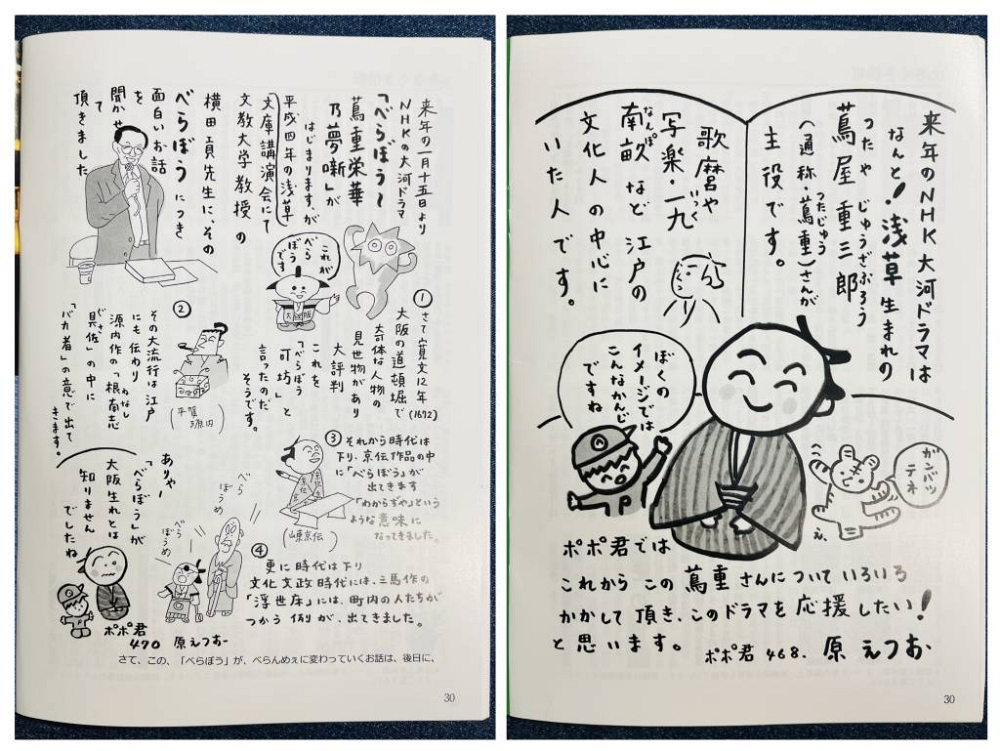 来年の一月十五日より
NHKの大河ドラマ
「べらぼう〜
蔦重栄華
乃夢噺」が
はじまりますが、
平成四年の浅草
文庫講演会にて
文教大学教授の
横田貢先生に、その
べらぼうにつき
面白いお話
を
聞かせ
て
頂きました
これが
べら
ぼう
です
①
さて寛文12年
(1672)
大阪の道頓堀で
奇体な人物の
見世物があり
大評判
これを
「べらぼう
可坊」と
言ったのだ
そうです。
②
(平賀
源内)
その大流行は江戸
にも伝わり
源内作の「根南志
ねなし
具佐」の中に
ぐさ
バカ者」の意で出て
きます。
③
それから時代は
下り、京伝作品の中
に「べらぼう」が
出てきます
「わからずや」という
ような意味に
なってきました。
(山東京伝)
④
更に時代は下り
文化文政時代には、三馬作の
「浮世床」には、町内の人たちが
つかう例が、出てきました。
べら
ぼうめ
べら
ぼうめ
ありゃー
「べらぼう」が
大阪生れとは
知りません
でしたね
ポポ君
470 原えつおー
さて、この、「べらぼう」が、べらんめぇに変わっていくお話は、後日に、
30
来年のNHK大河ドラマは
なんと!浅草生まれの
つたや じゅうざぶろう
蔦屋重三郎
つたじゅう
(通称・蔦重)さんが
主役です。
歌麿や
いっく
写楽・一九
なんぽ
南畝など江戸の
文化人の中心に
いた人です。
ぼくの
イメージでは
こんなかんじ
ですね
P
ガンバッ
テネ
ポポ君では
これからこの蔦重さんについていろいろ
かかして頂き、このドラマを応援したい!
と思います。
ポポ君468. 原えつお・
30